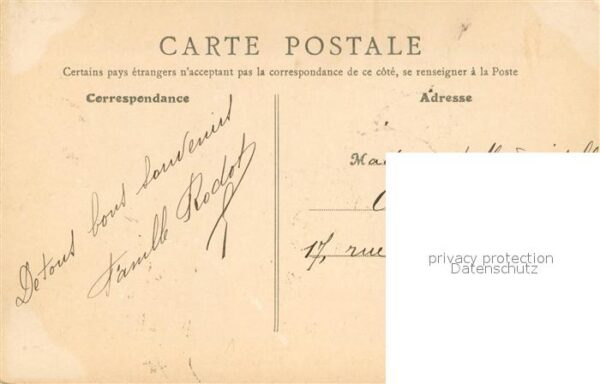 CARTE POSTALE
Certains pays étrangers n'acceptant pas la correspondance de ce côté, se renseigner à la Poste
Correspondance
De tous bons souvenirs
Famille Rodot
Adresse
17, rue
privacy protection
Datenschutz